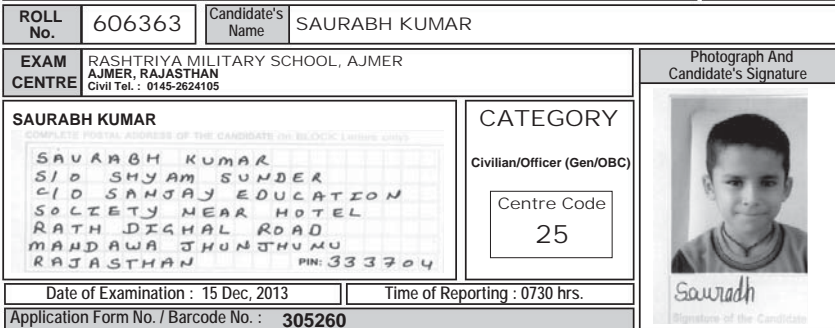 ROLL No. 606363 Candidate's Name SAURABH KUMAR
EXAM CENTRE RASHTRIYA MILITARY SCHOOL, AJMER
AJMER, RAJASTHAN
Civil Tel. : 0145-2624105
Photograph And
Candidate's Signature
SAURABH KUMAR
COMPLETE POSTAL ADDRESS OF THE CANDIDATE (in BLOCK Letters only)
SAURABH KUMAR
S/O SHYAM SUNDER
C/O SANJAY EDUCATION
SOCIETY NEAR HOTEL
RATH DIGHAL ROAD
MANDAWA JHUNJHUNU
RAJASTHAN PIN: 333704
CATEGORY
Civilian/Officer (Gen/OBC)
Centre Code
25
Saurabh
Signature of the Candidate
Date of Examination : 15 Dec, 2013 Time of Reporting : 0730 hrs.
Application Form No. / Barcode No. : 305260